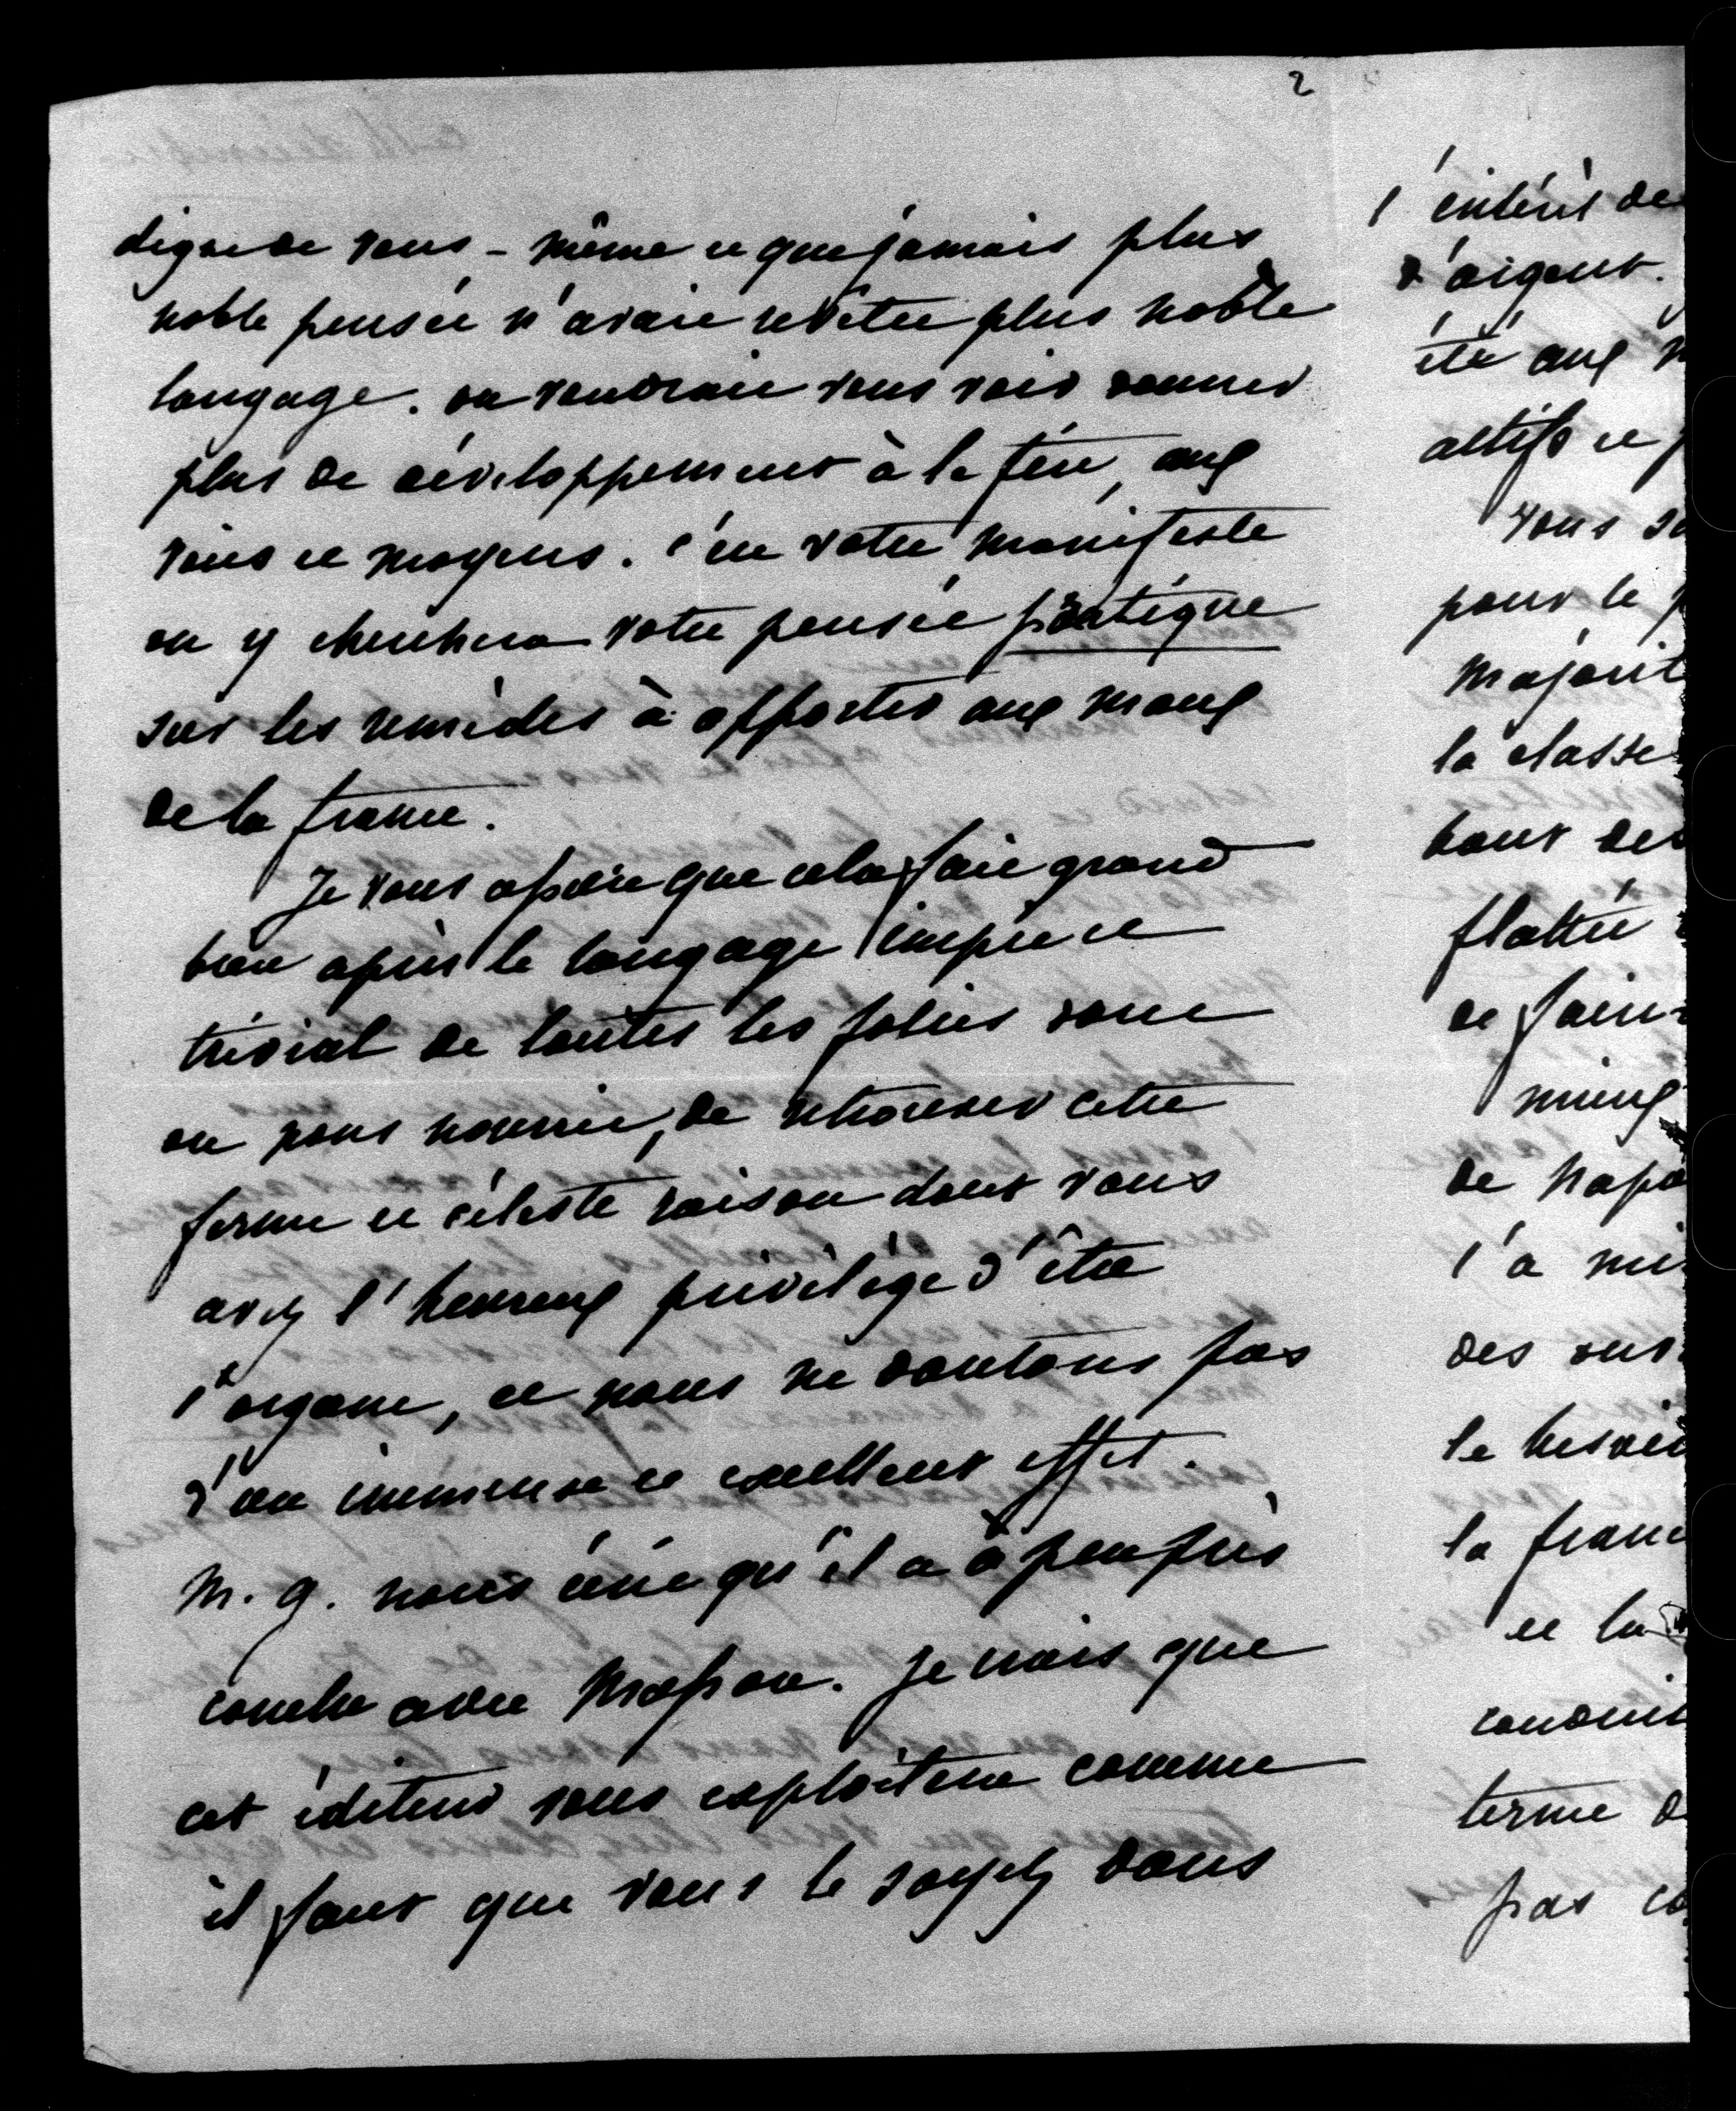 2
digne de vous-même et que jamais plus
noble pensée n'avait revêtu plus noble
langage. on voudrait vous voir donner
plus de développement à la fin, aux
voies et moyens. c'est votre manifeste
on y cherchera votre pensée pratique
sur les remèdes à apporter aux maux
de la france.
Je vous assure que cela fait grand
bien après le langage impie et
trivial de toutes les folies dont
on nous nourrit, de retrouver cette
ferme et céleste raison dont vous
avez l'heureux privilège d'être
l'organe, et nous ne doutons pas
d'un immense et excellent effet.
M. g. nous écrit qu'il a à peu près
conclu avec Masson. Je crois que
cet éditeur vous exploitera comme
il faut que vous le soyez dans
l'intérêt de
d'argent.
été aux
actifs et
vous
pour le
majorit
la classe
bout des
flattée
de
mieux
de Napo
l'a
des
le besoin
la franc
et la
conduit
terme d
pas co